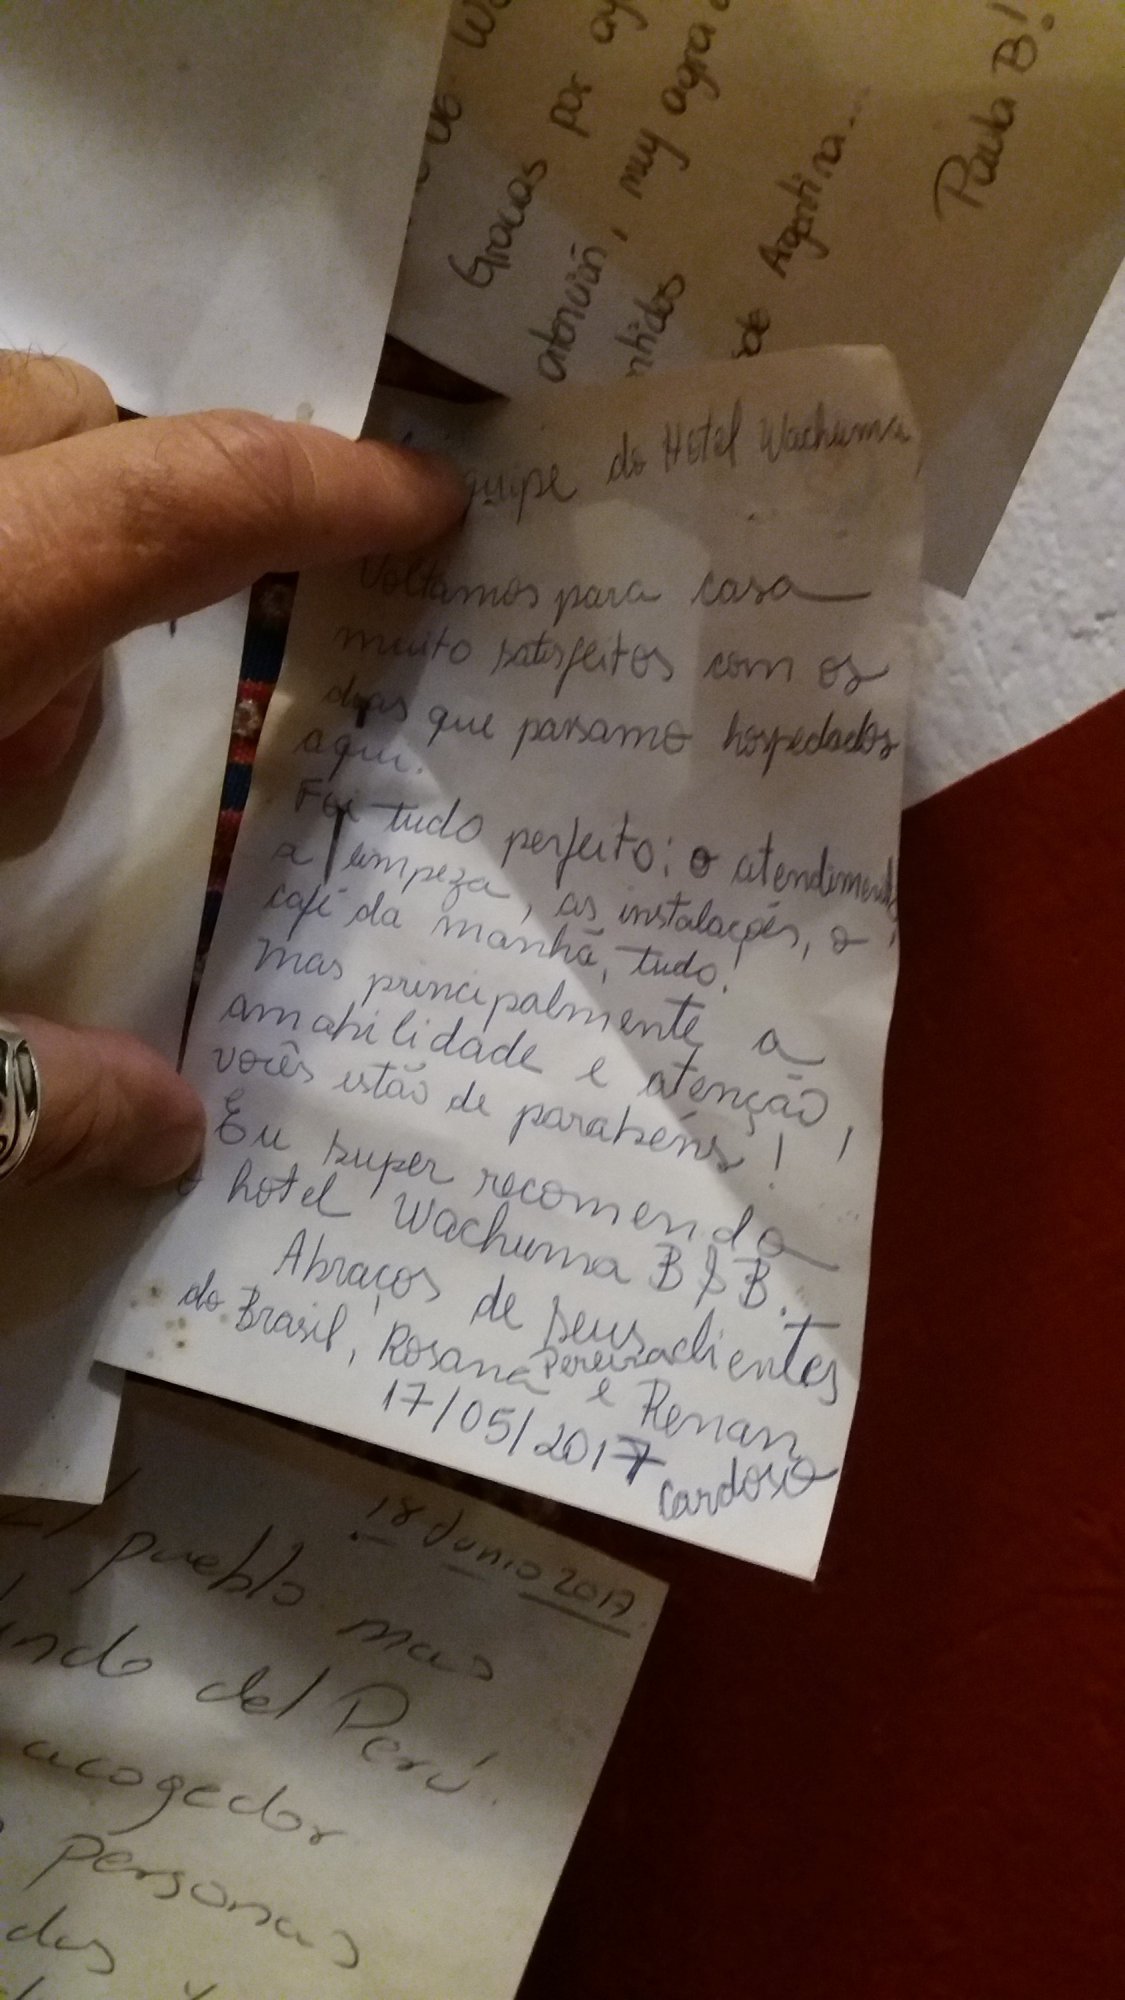 Gracias por
atención, muy
Argentina...
Paula B!
equipe do Hotel Wachuma
Voltamos para casa
muito satisfeitos com os
dias que passamo hospedados
aqui.
Foi tudo perfeito: o atendimento,
a limpeza, as instalações, o
café da manhã, tudo!
Mas principalmente a
amabilidade e atenção,
vocês estão de parabéns!!
Eu super recomendo
o hotel Wachuma B&B.
Abraços de seus clientes
do Brasil, Rosana Pereira e Renan
Cardoso
17/05/2017
18 Junio 2017
pueblo mas
del Perú.
acogedor
personas